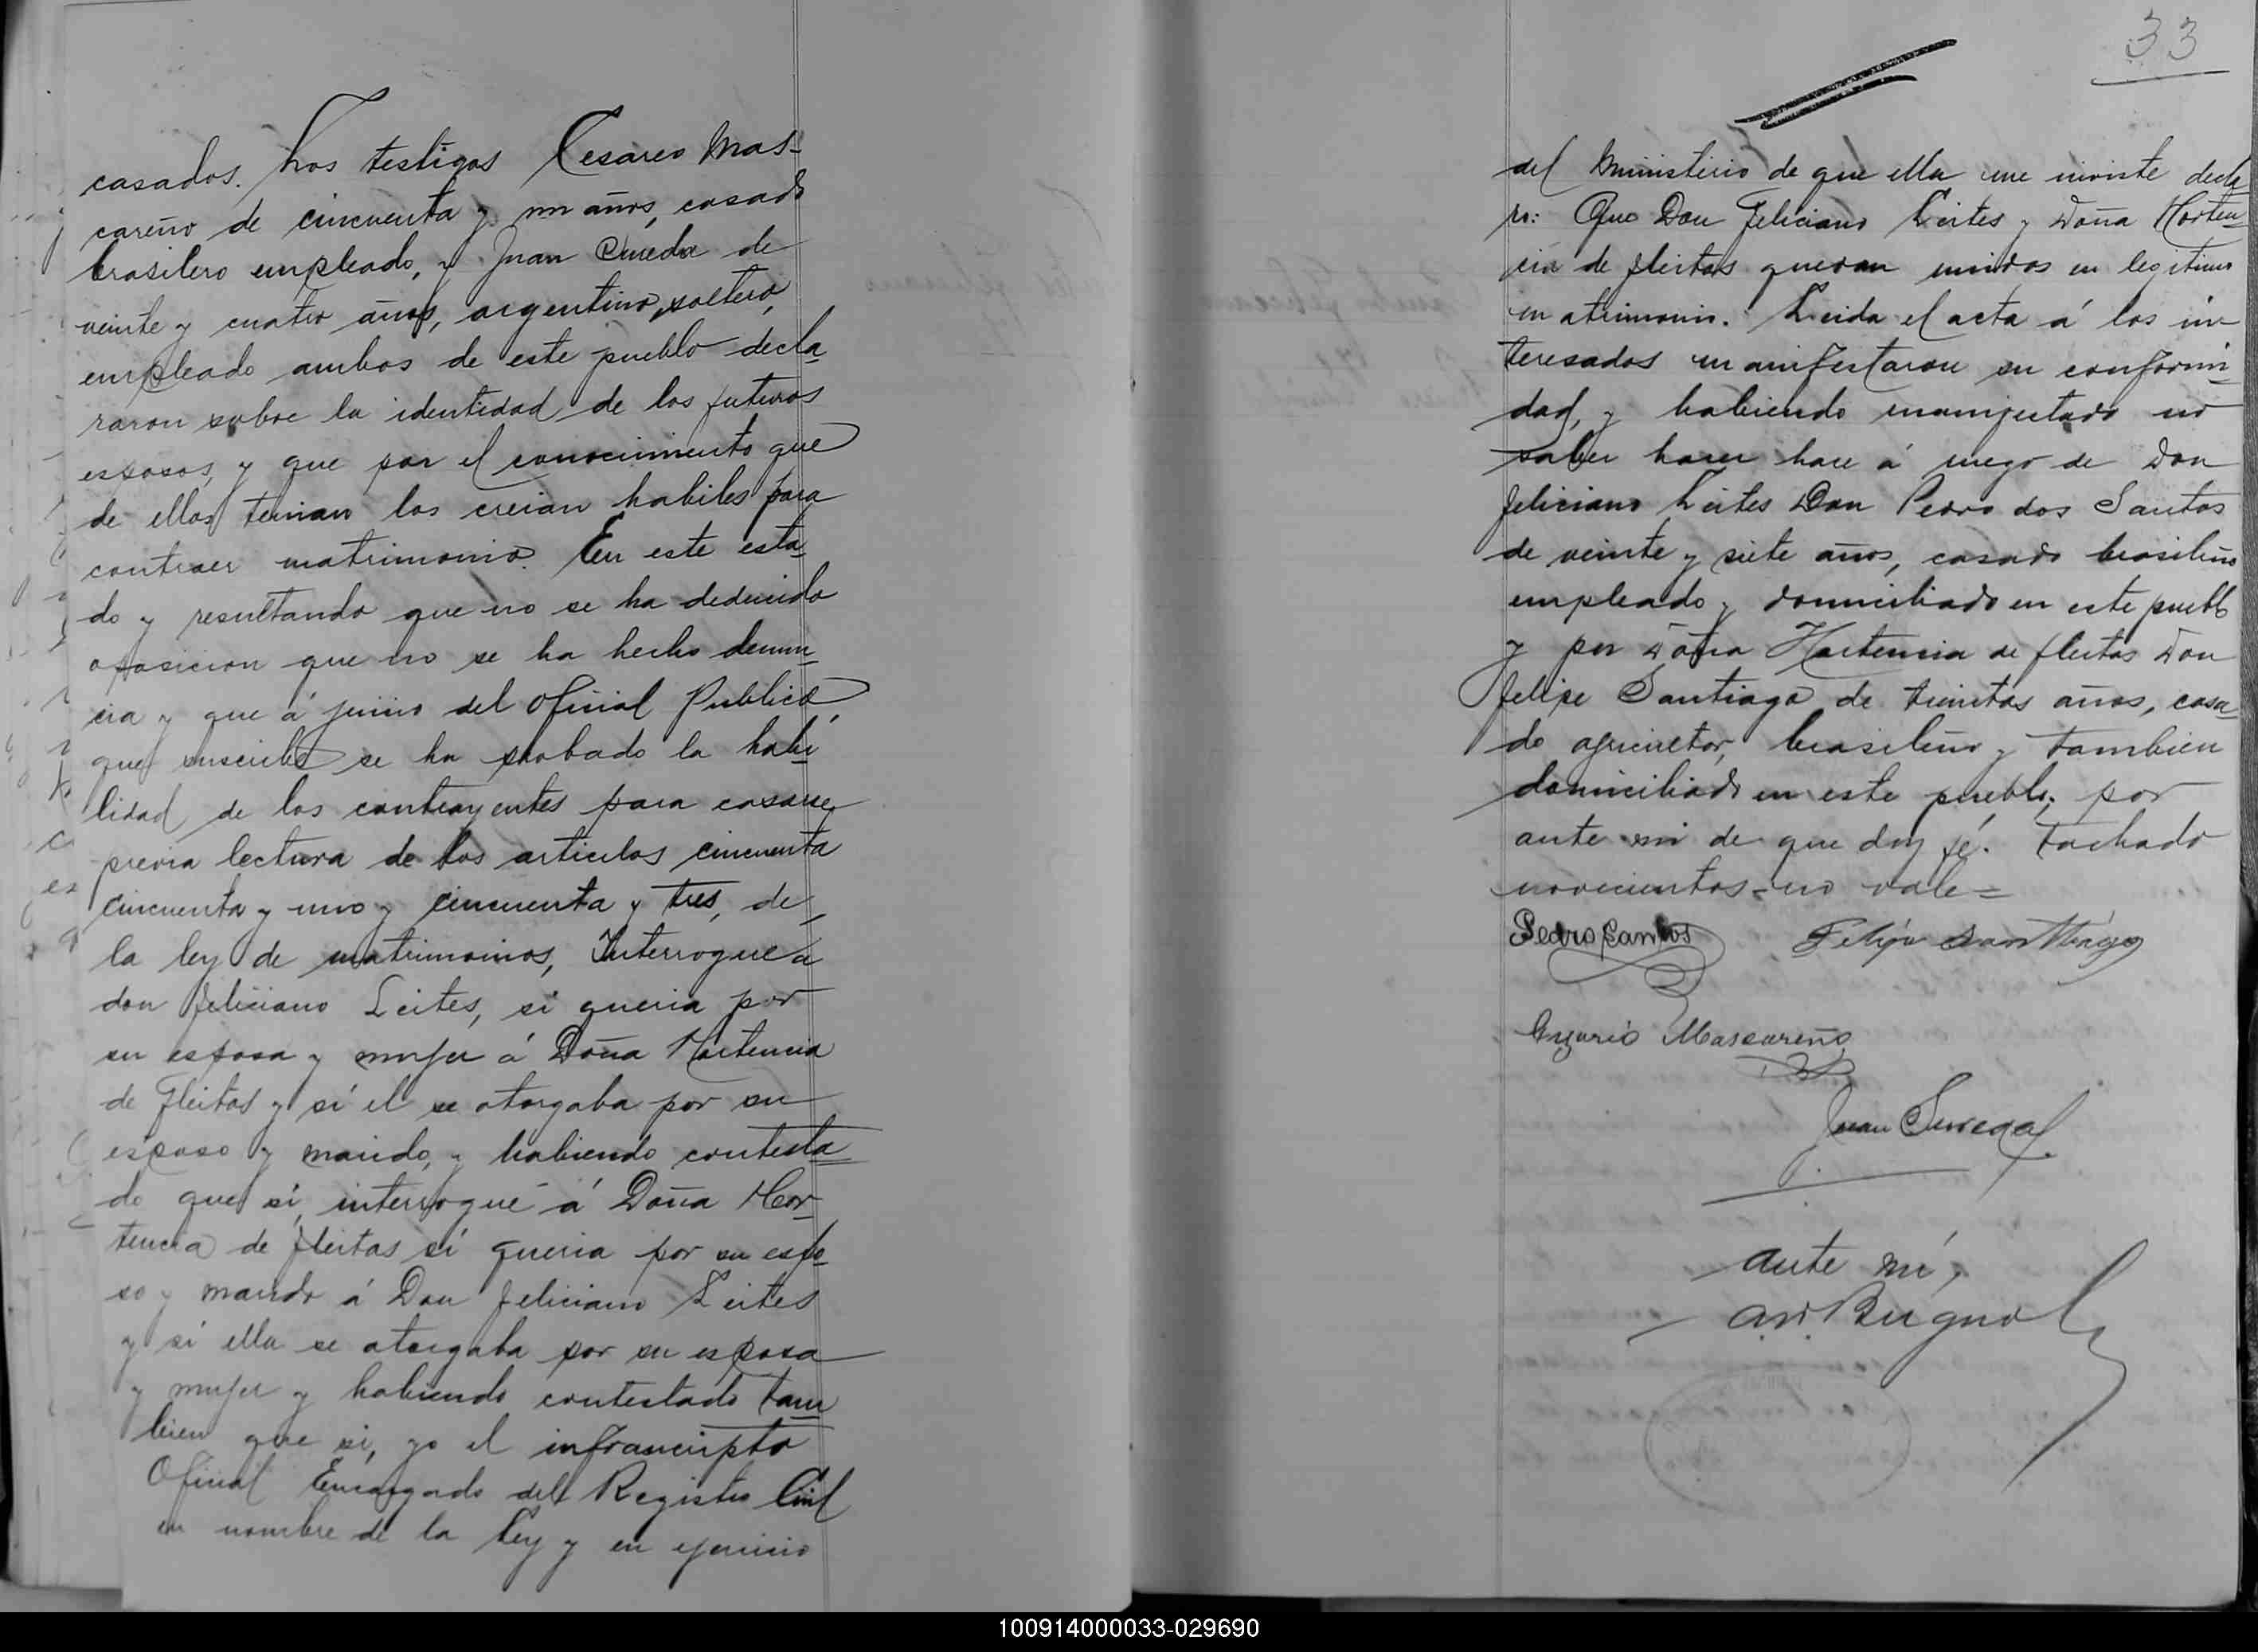 casados. Los testigos Cesareo Mas-
careño de cincuenta y un años, casado
brasilero empleado, y Juan de
veinte y cuatro años, argentino, soltero,
empleado ambos de este pueblo decla
raron sobre la identidad de los futuros
esposos, y que por el conocimiento que
de ellos tenian los creian habiles para
contraer matrimonio. En este esta
do y resultando que no se ha deducido
oposicion que no se ha hecho denun
cia y que á juicio del Oficial Publico,
que suscribe se ha probado la habi
lidad de los contrayentes para casarse,
previa lectura de los articulos cincuenta
cincuenta y uno y cincuenta y tres, de
la ley de matrimonios, Interrogue a
don Feliciano Leites, si queria por
su esposa y mujer á Doña Hortencia
de Fleitas y si el se otorgaba por su
esposo y marido, y habiendo contesta
do que si, interrogué á Doña Hor
tencia de Fleitas si queria por su espo
so y marido á Don Feliciano Leites
y si ella se otorgaba por su esposa
y mujer y habiendo contestado tam
bien que si, yo el infrascripto
Oficial Encargado del Registro Civil
en nombre de la Ley y en ejercicio
33
del Ministerio de que ella me inviste decla
ro: Que Don Feliciano Leites y Doña Horten
cia de Fleitas quedan unidos en legitimo
matrimonio. Leida el acta á los in
teresados manifestaron su conformi
dad, y habiendo manifestado no
saber hacer hace á ruego de Don
Feliciano Leites Don Pedro dos Santos
de veinte y siete años, casado brasileño
empleado y domiciliado en este pueblo
y por Doña Hortencia de Fleitas Don
Felipe Santiago de treintas años, casa
do agricultor, brasileño y tambien
domiciliado en este pueblo; por
ante mi de que doy fé. Tachado
novecientos-no vale=
Pedro Santos Felipe Santiago
Mascareño
Juan
Ante mí,